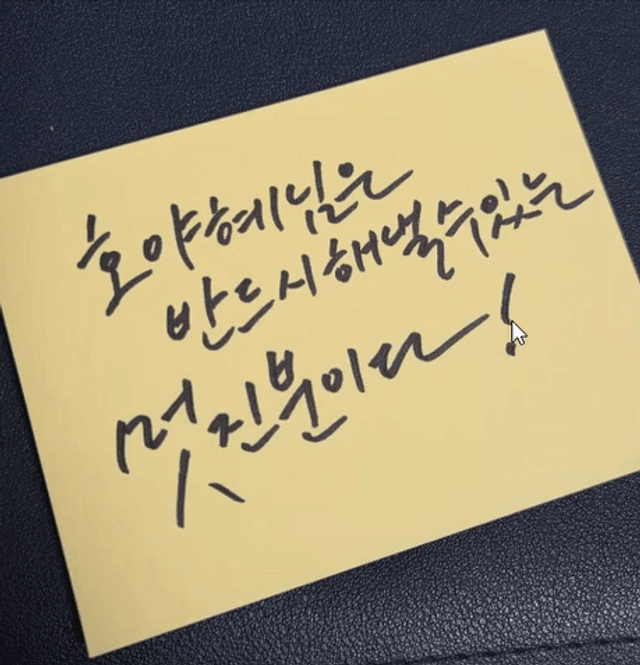 호야혜님은
반드시해낼수있는
멋진분이다!